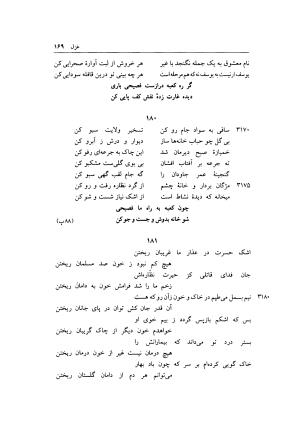 غزل ۱۶۹
نام معشوق به یک جمله نگنجد با غیر هر خروش از لبت آوازهٔ صحرایی کن
یوسف ار نیست به یوسف نه که هم مرحله است هر چه بینی تو درین قافله سودایی کن
گر ره کعبه درازست فصیحی باری
دیده غارت زدهٔ نقش کف پایی کن
۱۸۰
۳۱۷۰ ساقی به سواد جام رو کن تسخیر ولایت سبو کن
بی گل چو حباب خانه‌ها ساز دیوار و درش ز آبرو کن
خمیازهٔ صبح دیرمان شد این چاک به جرعه‌ای رفو کن
ته جرعه بر آفتاب افشان بی بوی گلست مشکبو کن
گنجینهٔ عمر جاودان را گه جام لقب گهی سبو کن
۳۱۷۵ مژگان بردار و خانهٔ چشم از گرد نظاره رفت و رو کن
میخانه که دیدهٔ نشاط است از اشک نیاز شست و شو کن
چون کعبه به راه ما فصیحی
شو خانه بدوش و جست و جو کن (۸۸پ)
۱۸۱
اشک حسرت در عذار ما غریبان ریختن
هیچ کم نبود ز خون صد مسلمان ریختن
جان فدای قاتلی کز حیرت نظّاره‌اش
زخم ما را شد فرامش خون به دامان ریختن
۳۱۸۰ نیم بسمل می‌طپم در خاک و خون زآن رو که هست
آن قدر جان کش توان در پای جانان ریختن
بس که اشکم بازپس گردد ز بیم خوی او
خواهدم خون دیگر از چاک گریبان ریختن
بستر درد تو می‌داند که بیمارانش را
هیچ درمان نیست غیر از خون درمان ریختن
خاک گویی کرده‌ام بر سر که چون باد بهار
می‌توانم هر دم از دامان گلستان ریختن